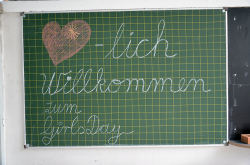 -lich
Willkommen
zum
Girls'Day